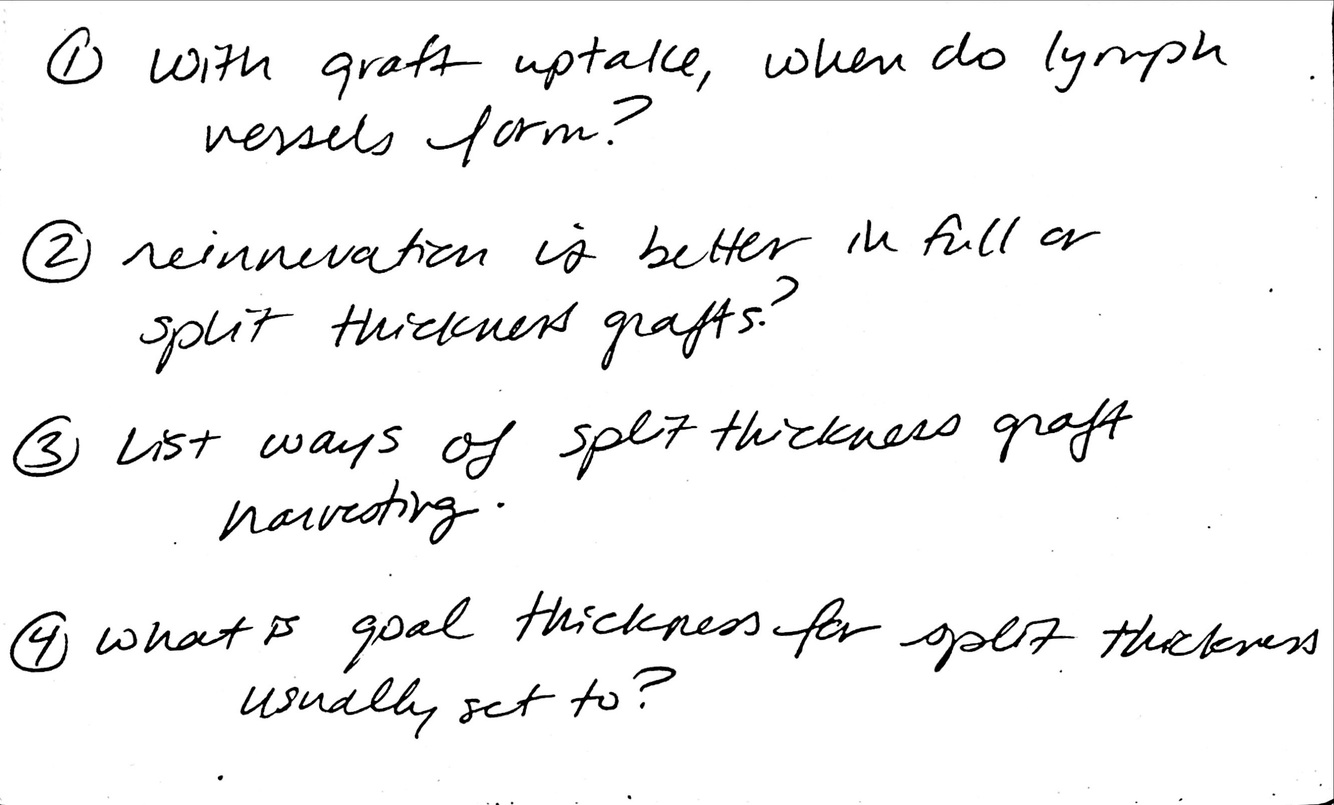 ① with graft uptake, when do lymph
vessels form?
② reinnervation is better in full or
split thickness grafts?
③ List ways of split thickness graft
harvesting.
④ what is goal thickness for split thickness
usually set to?